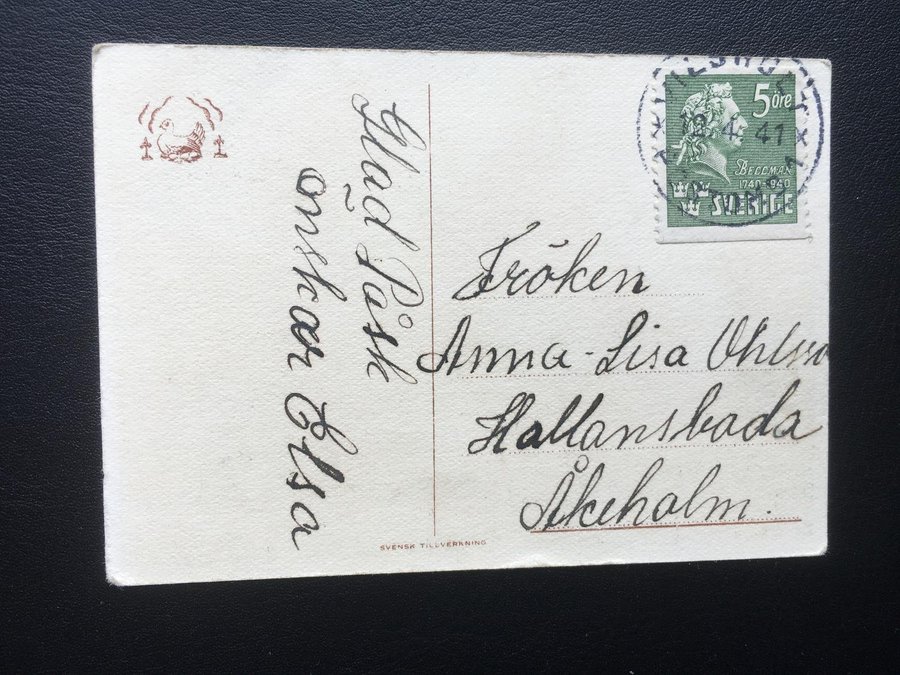 Glad Påsk
önskar Elsa
5 öre
12. 4. 41
BELLMAN
1740-1940
SVERIGE
Fröken
Anna-Lisa Ohlsso
Hallansboda
Åkeholm.
SVENSK TILLVERKNING